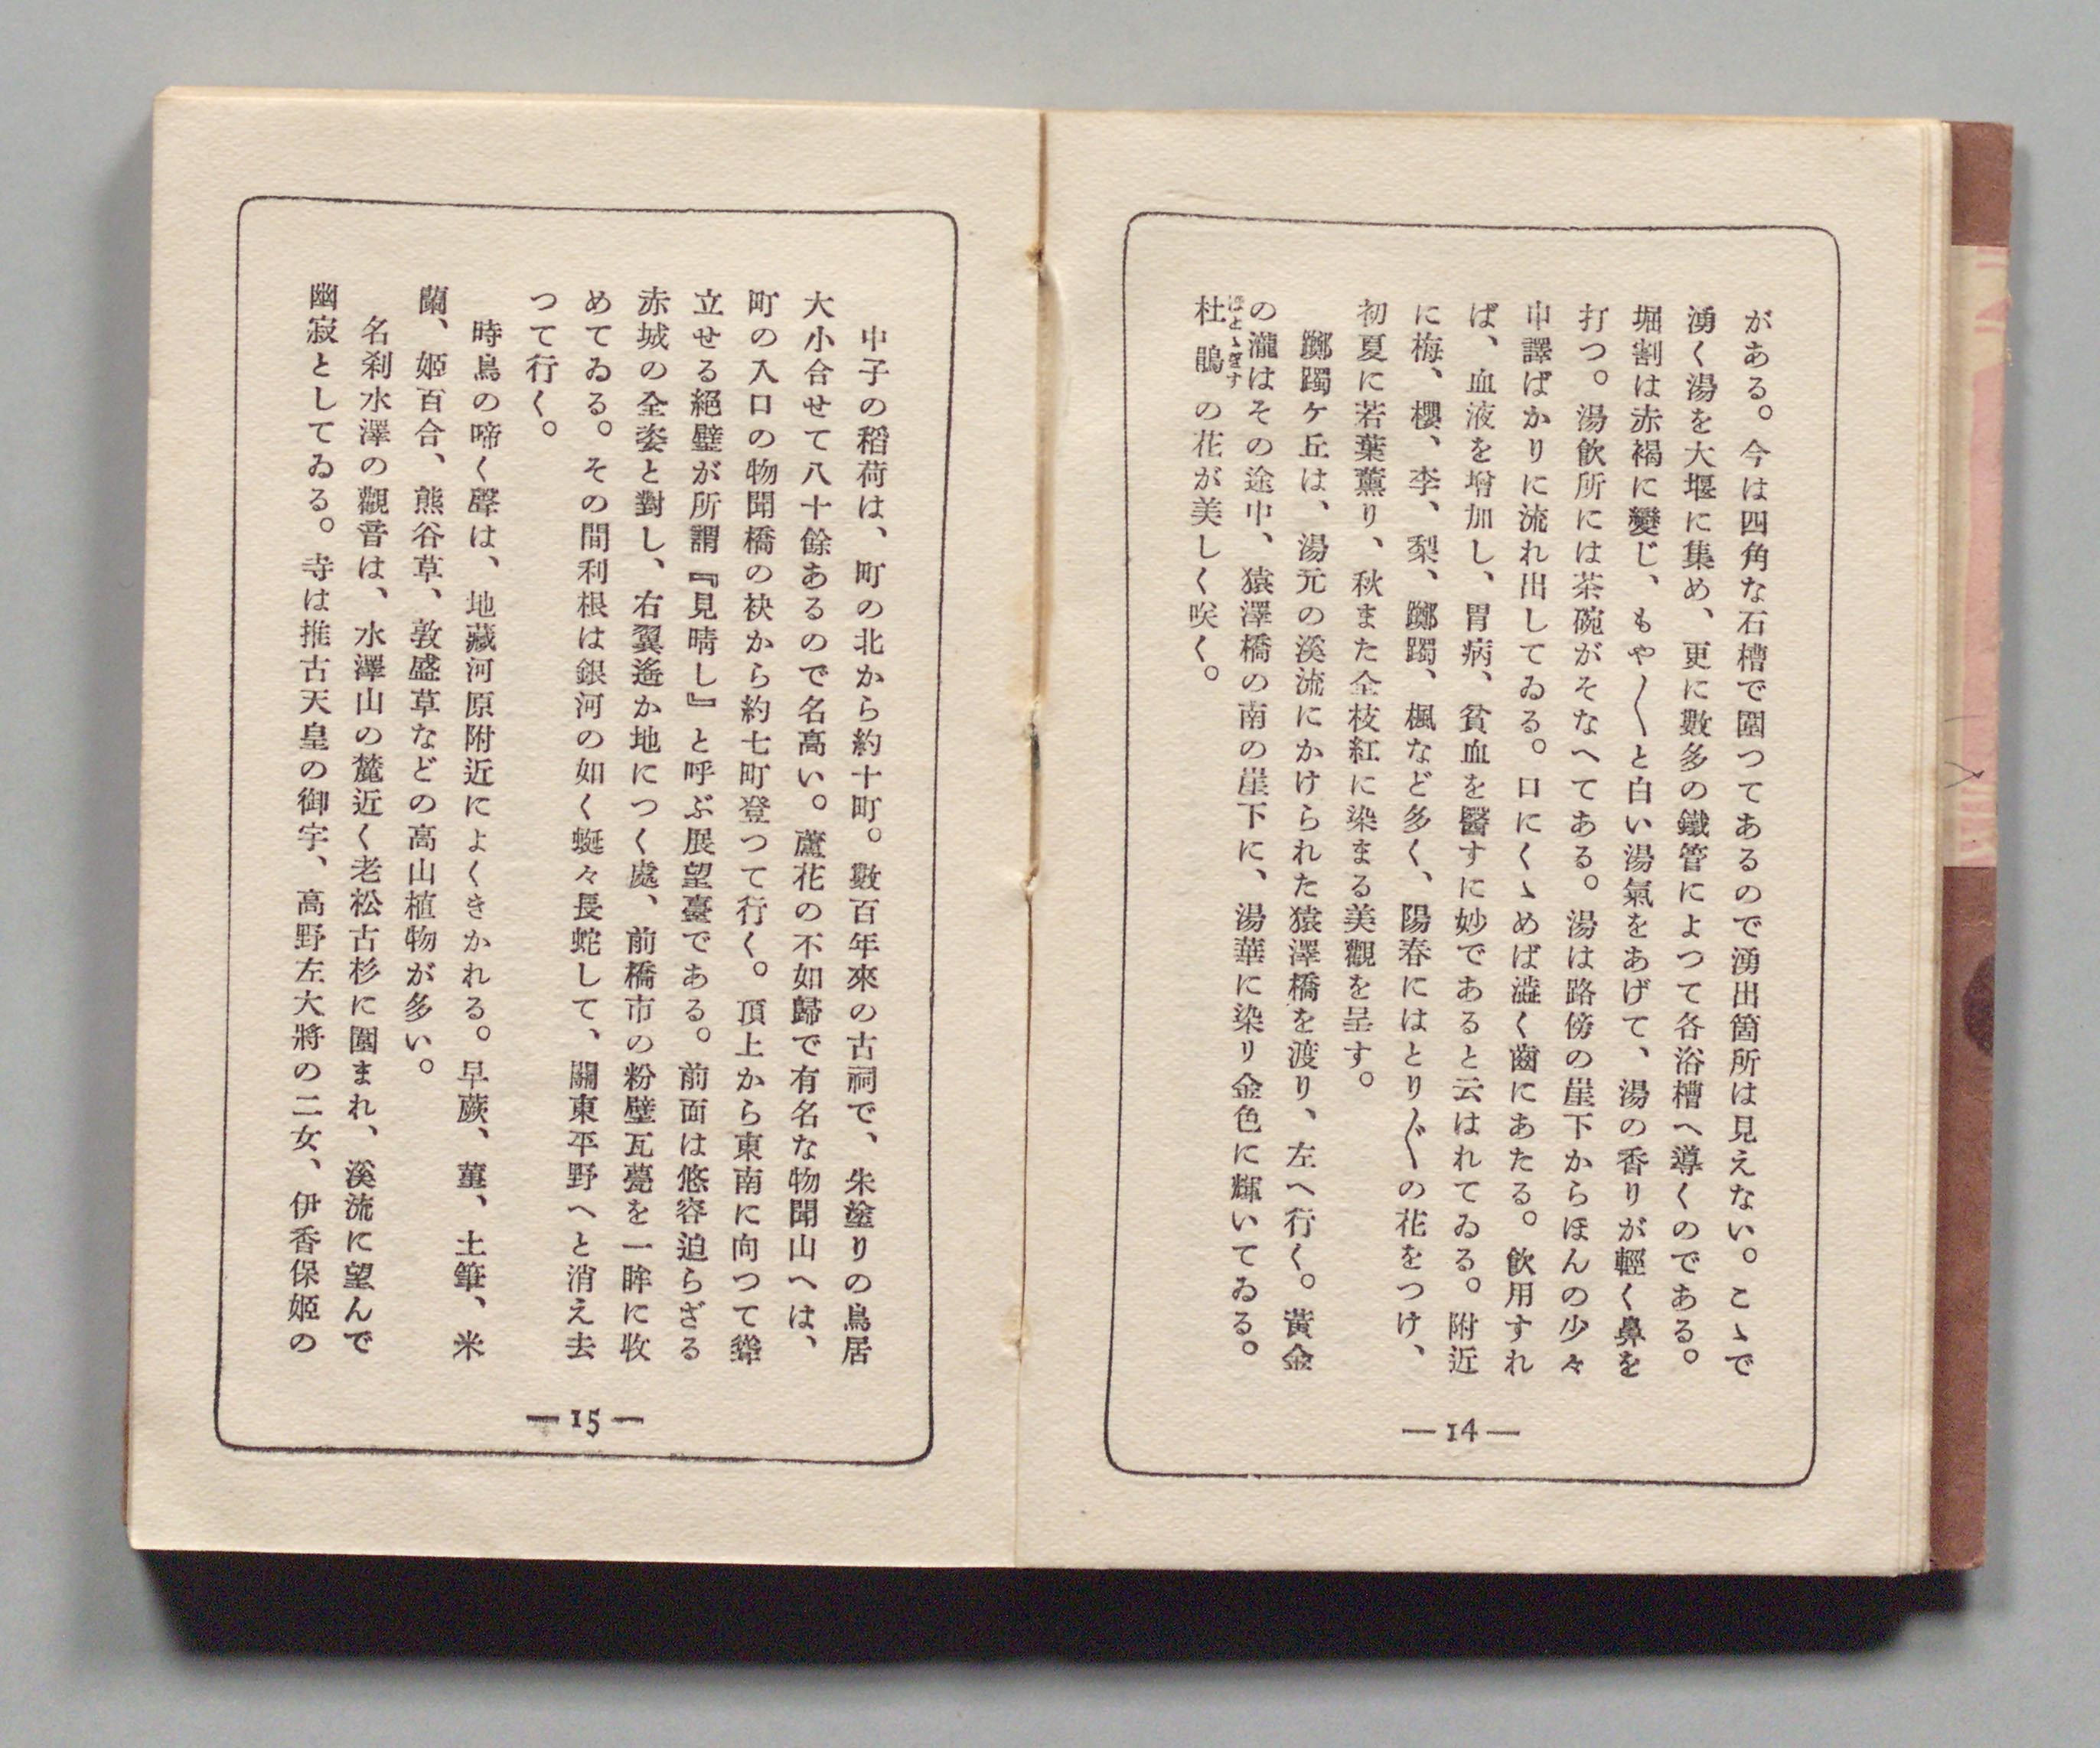 がある。今は四角な石槽で圍つてあるので湧出箇所は見えない。こゝで
湧く湯を大堰に集め、更に數多の鐵管によつて各浴槽へ導くのである。
堀割は赤褐に變じ、もや〱と白い湯氣をあげて、湯の香りが輕く鼻を
打つ。湯飮所には茶碗がそなへてある。湯は路傍の崖下からほんの少々
申譯ばかりに流れ出してゐる。口にくゝめば澁く齒にあたる。飮用すれ
ば、血液を増加し、胃病、貧血を醫すに妙であると云はれてゐる。附近
に梅、櫻、李、梨、躑躅、楓など多く、陽春にはとり〲の花をつけ、
初夏に若葉薫り、秋また全枝紅に染まる美觀を呈す。
躑躅ケ丘は、湯元の溪流にかけられた猿澤橋を渡り、左へ行く。黃金
の瀧はその途中、猿澤橋の南の崖下に、湯華に染り金色に輝いてゐる。
ほとゝぎす
杜鵑の花が美しく咲く。
—14—
中子の稻荷は、町の北から約十町。數百年來の古祠で、朱塗りの鳥居
大小合せて八十餘あるので名高い。蘆花の不如歸で有名な物聞山へは、
町の入口の物聞橋の袂から約七町登つて行く。頂上から東南に向つて聳
立せる絕壁が所謂『見晴し』と呼ぶ展望臺である。前面は悠容迫らざる
赤城の全姿と對し、右翼遙か地につく處、前橋市の粉壁瓦甍を一眸に收
めてゐる。その間利根は銀河の如く蜒々長蛇して、關東平野へと消え去
つて行く。
時鳥の啼く聲は、地藏河原附近によくきかれる。早蕨、菫、土筆、米
蘭、姬百合、熊谷草、敦盛草などの高山植物が多い。
名刹水澤の觀音は、水澤山の麓近く老松古杉に圍まれ、溪流に望んで
幽寂としてゐる。寺は推古天皇の御宇、高野左大將の二女、伊香保姬の
—15—